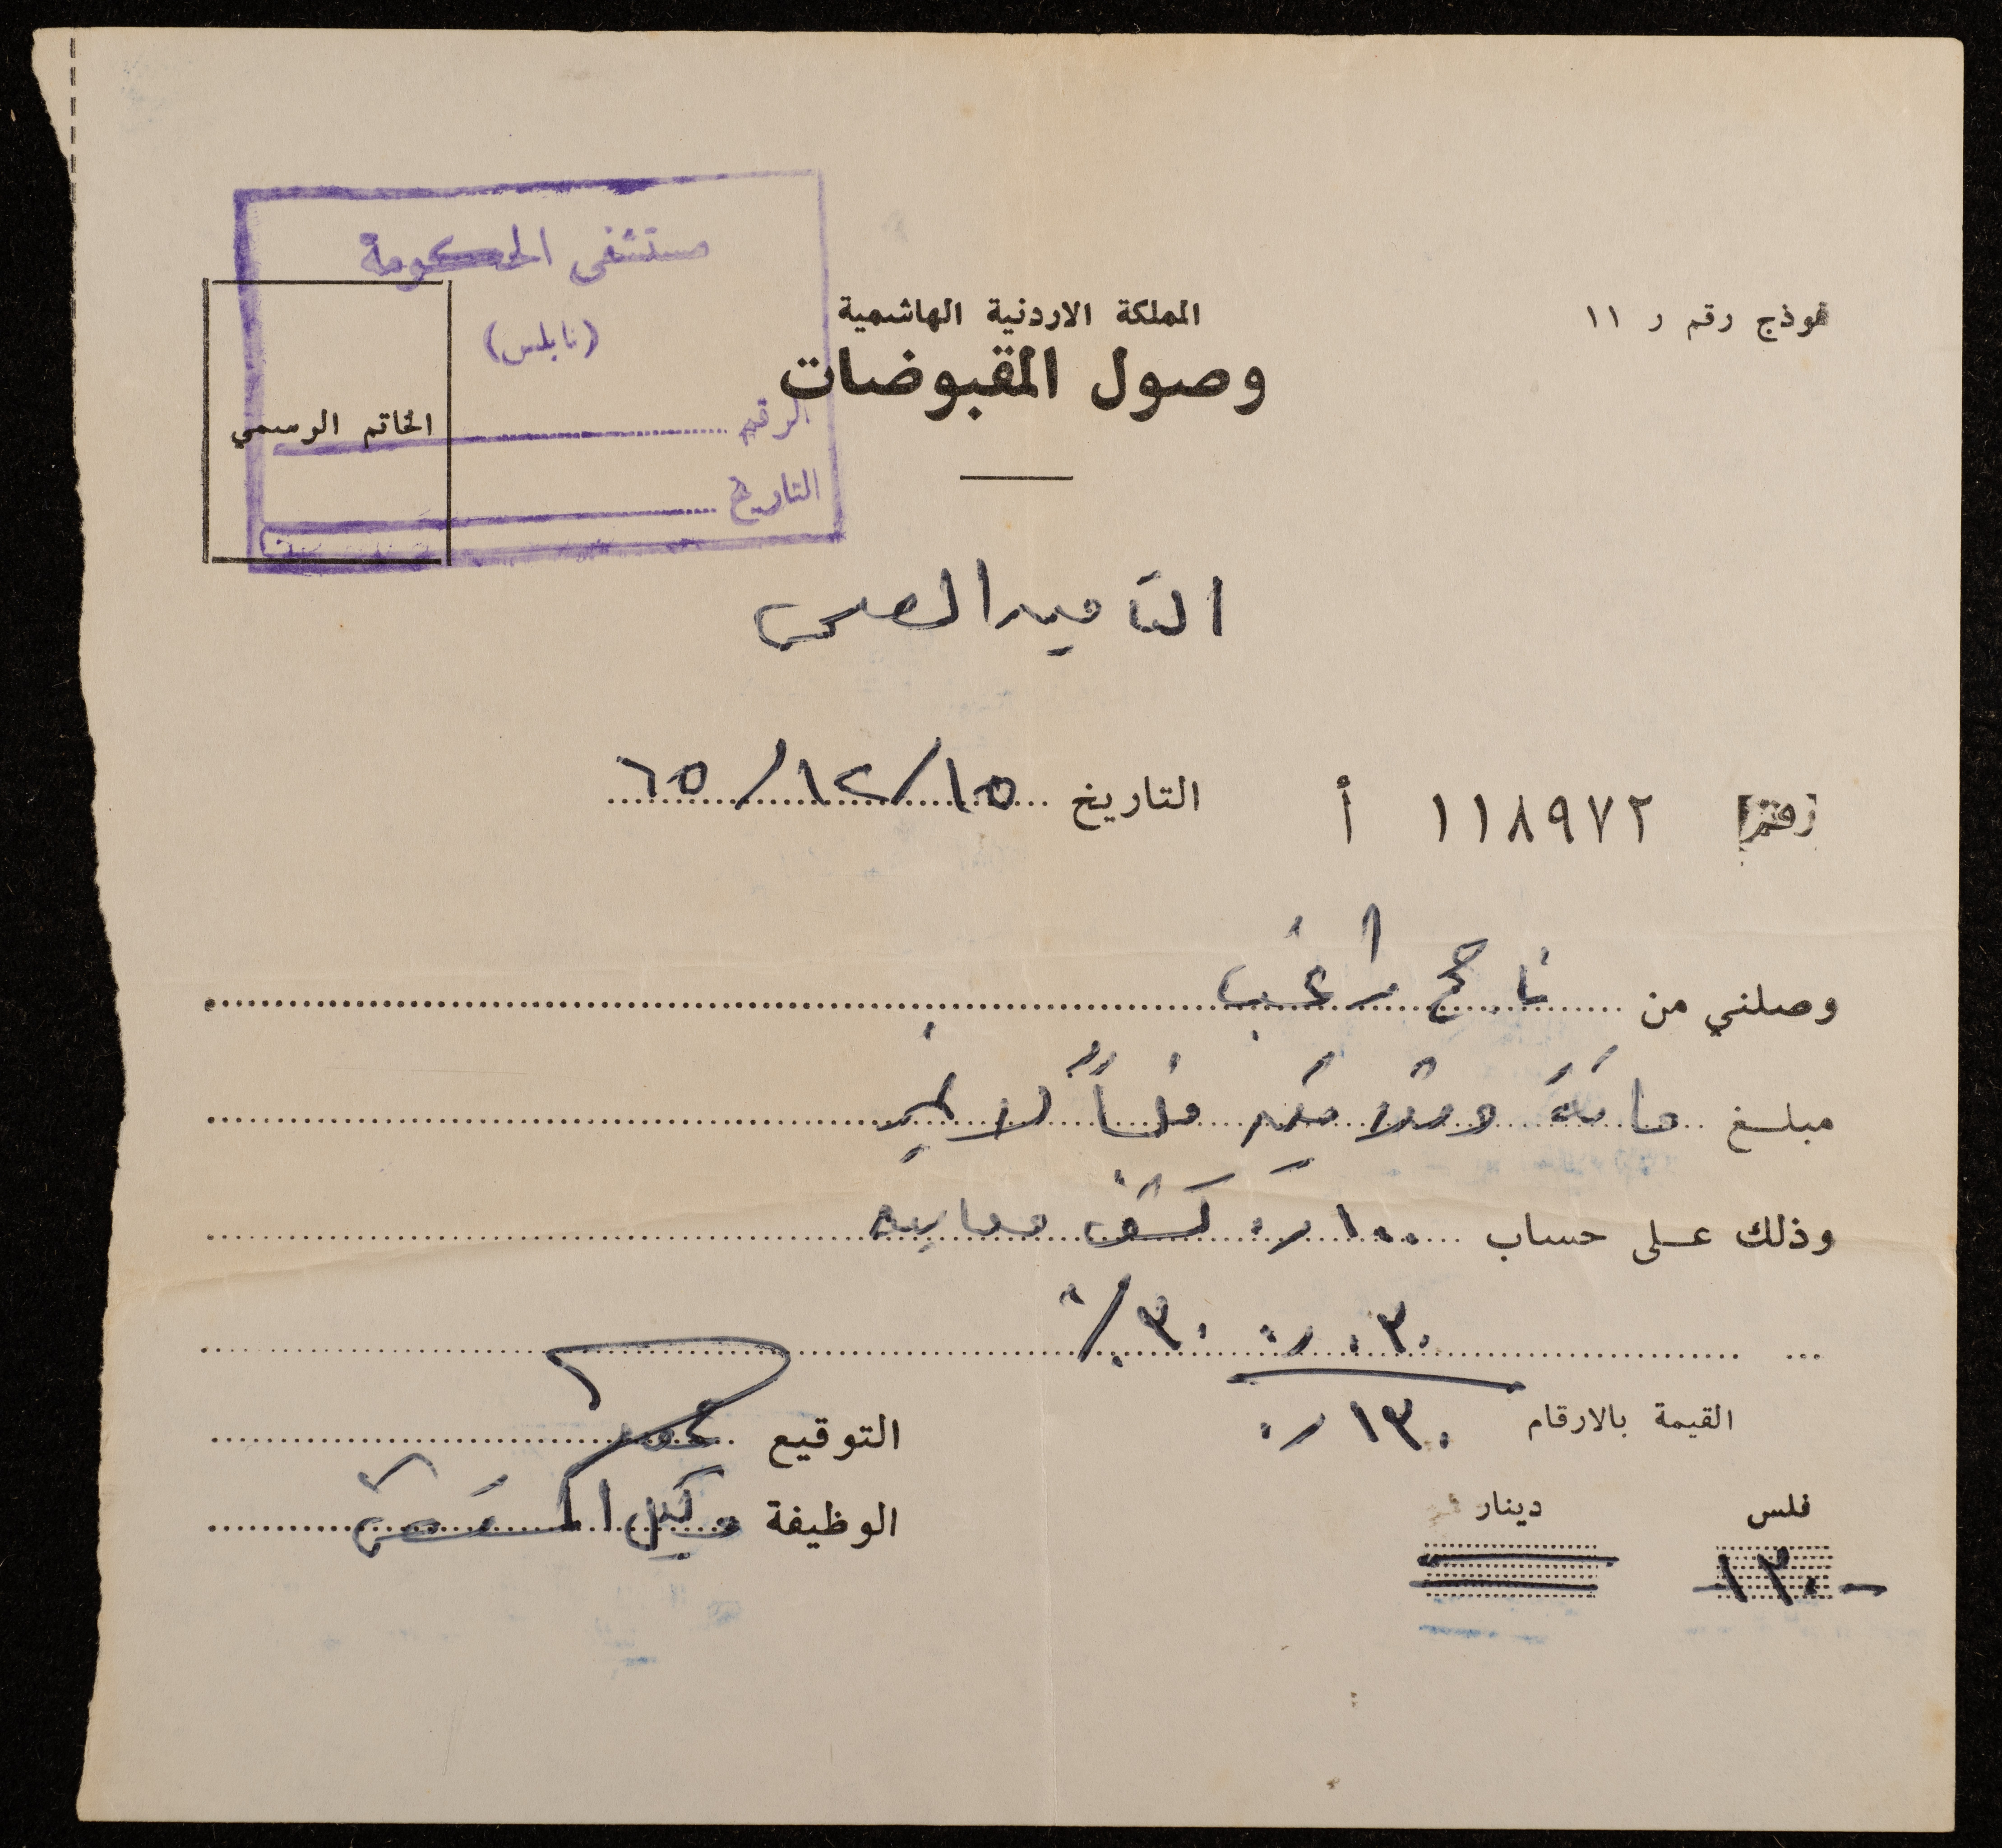 مستشفى الحكومة
(نابلس)
الرقم
التاريخ
نموذج رقم ر ١١
المملكة الاردنية الهاشمية
وصول المقبوضات
الخاتم الرسمي
التأمين الصحي
رقم ١١٨٩٧٢ أ التاريخ ٦٥/١٢/١٥
وصلني من ناجح راغب
مبلغ مائة وثلاثين فلساً لا غير
وذلك على حساب ١٠٠ر٠ كشف معاينة
٠٣٠ر٠ ٣٠٪
القيمة بالارقام ١٣٠ر٠
التوقيع
فلس دينار
١٣٠
الوظيفة وكيل المستشفى